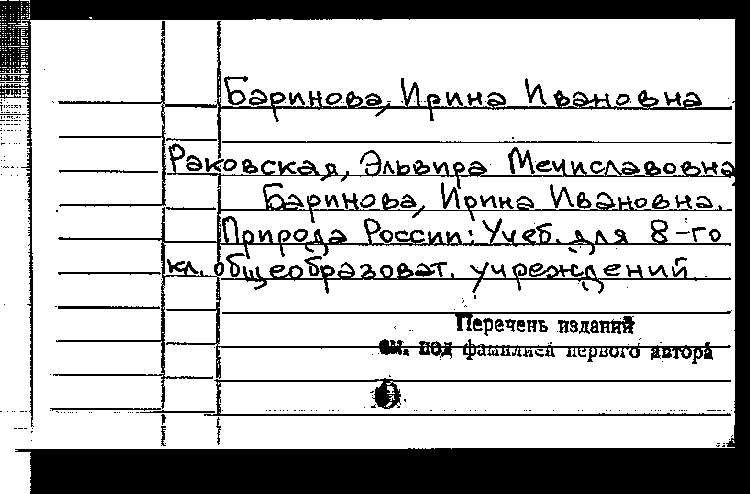 Баринова, Ирина Ивановна
Раковская, Эльвира Мечиславовна
Баринова, Ирина Ивановна.
Природа России: Учеб. для 8-го
кл. общеобразоват. учреждений.
Перечень изданий
см. под фамилией первого автора